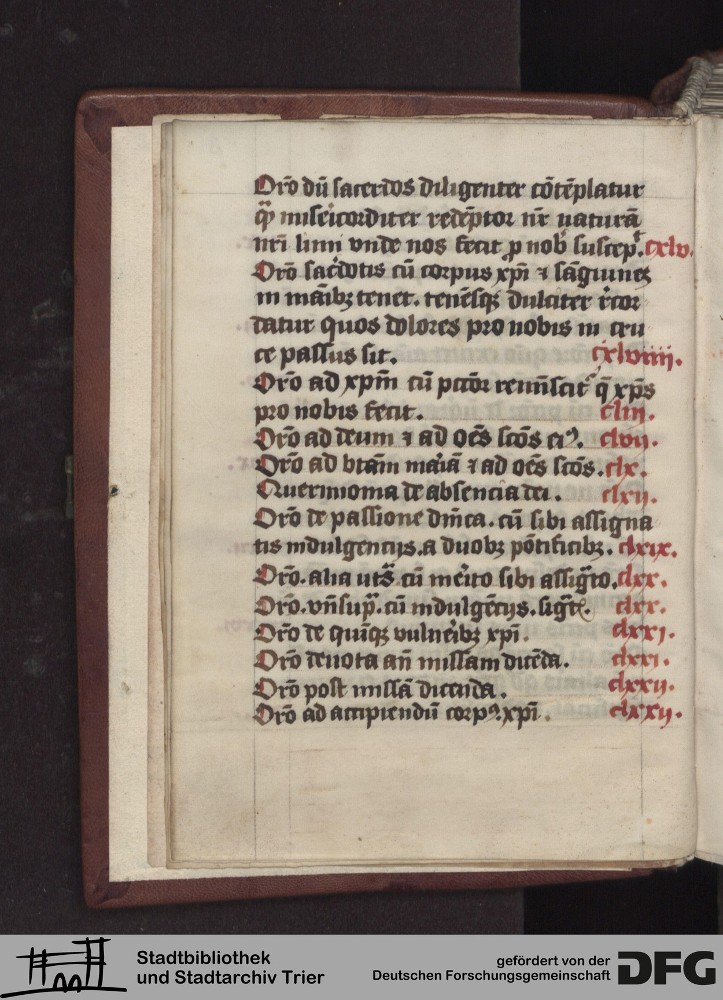 Orō dū sacerdos diligenter cōtēplatur
qͣ misericorditer redēptor nr̄ naturā
nrī limi vnde nos fecit ꝓ nob̄ suscep. cxlv.
Orō sac̄dotis cū corpus xpī ⁊ sāguinez
in māibꝫ tenet. tenēsqꝫ dulciter rͥcor
datur quos dolores pro nobis in cru
ce passus sit. cxlviiii.
Orō ad xpm̄ cū pctōr remīscit̄ q̄ xp̄s
pro nobis fecit. cliii.
Orō ad deum ⁊ ad oēs scōs eiꝰ. clvii.
Orō ad btām mariā ⁊ ad oēs scōs. clx.
Querimonia de absencia dei. clxii.
Orō de passione dnīca. cū sibi assigna
tis indulgencijs. a duobꝫ pōtificibꝫ. clxix.
Orō. alia utͣ cū merito sibi assigͣto. clxx.
Orō. vn̄ supͣ. cū indulgēcijs. clxx.
Orō de quīqꝫ vulneribꝫ xpī. clxxi.
Orō deuota an̄ missam dicēda. clxxi.
Orō post missā dicenda. clxxij.
Orō ad accipiendū corpꝰ xpī. clxxij.
Stadtbibliothek
und Stadtarchiv Trier
gefördert von der
Deutschen Forschungsgemeinschaft DFG